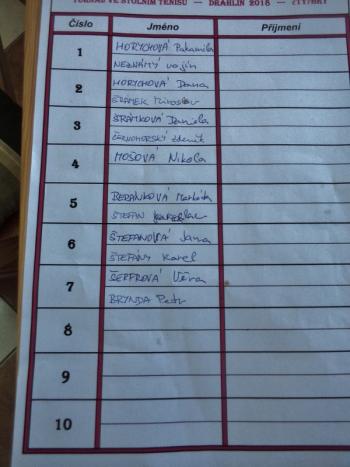 TURNAJ VE STOLNÍM TENISU — DRAHLÍN 2018 — ČTYŘHRY
Číslo Jméno Příjmení
1 HORYCHOVÁ
NEZNÁMÝ Vojín
2 HORYCHOVÁ Dana
ŠRÁMEK Miroslav
3 ŠRÁMKOVÁ Daniela
ČERNOHORSKÝ Zdeněk
4 MOŠOVÁ Nikola
5 BERÁNKOVÁ Markéta
ŠTEFAN
6 ŠTEFANOVÁ Jana
ŠTEFÁNY Karel
7 ŠERFROVÁ Věra
BRYNDA Petr
8
9
10